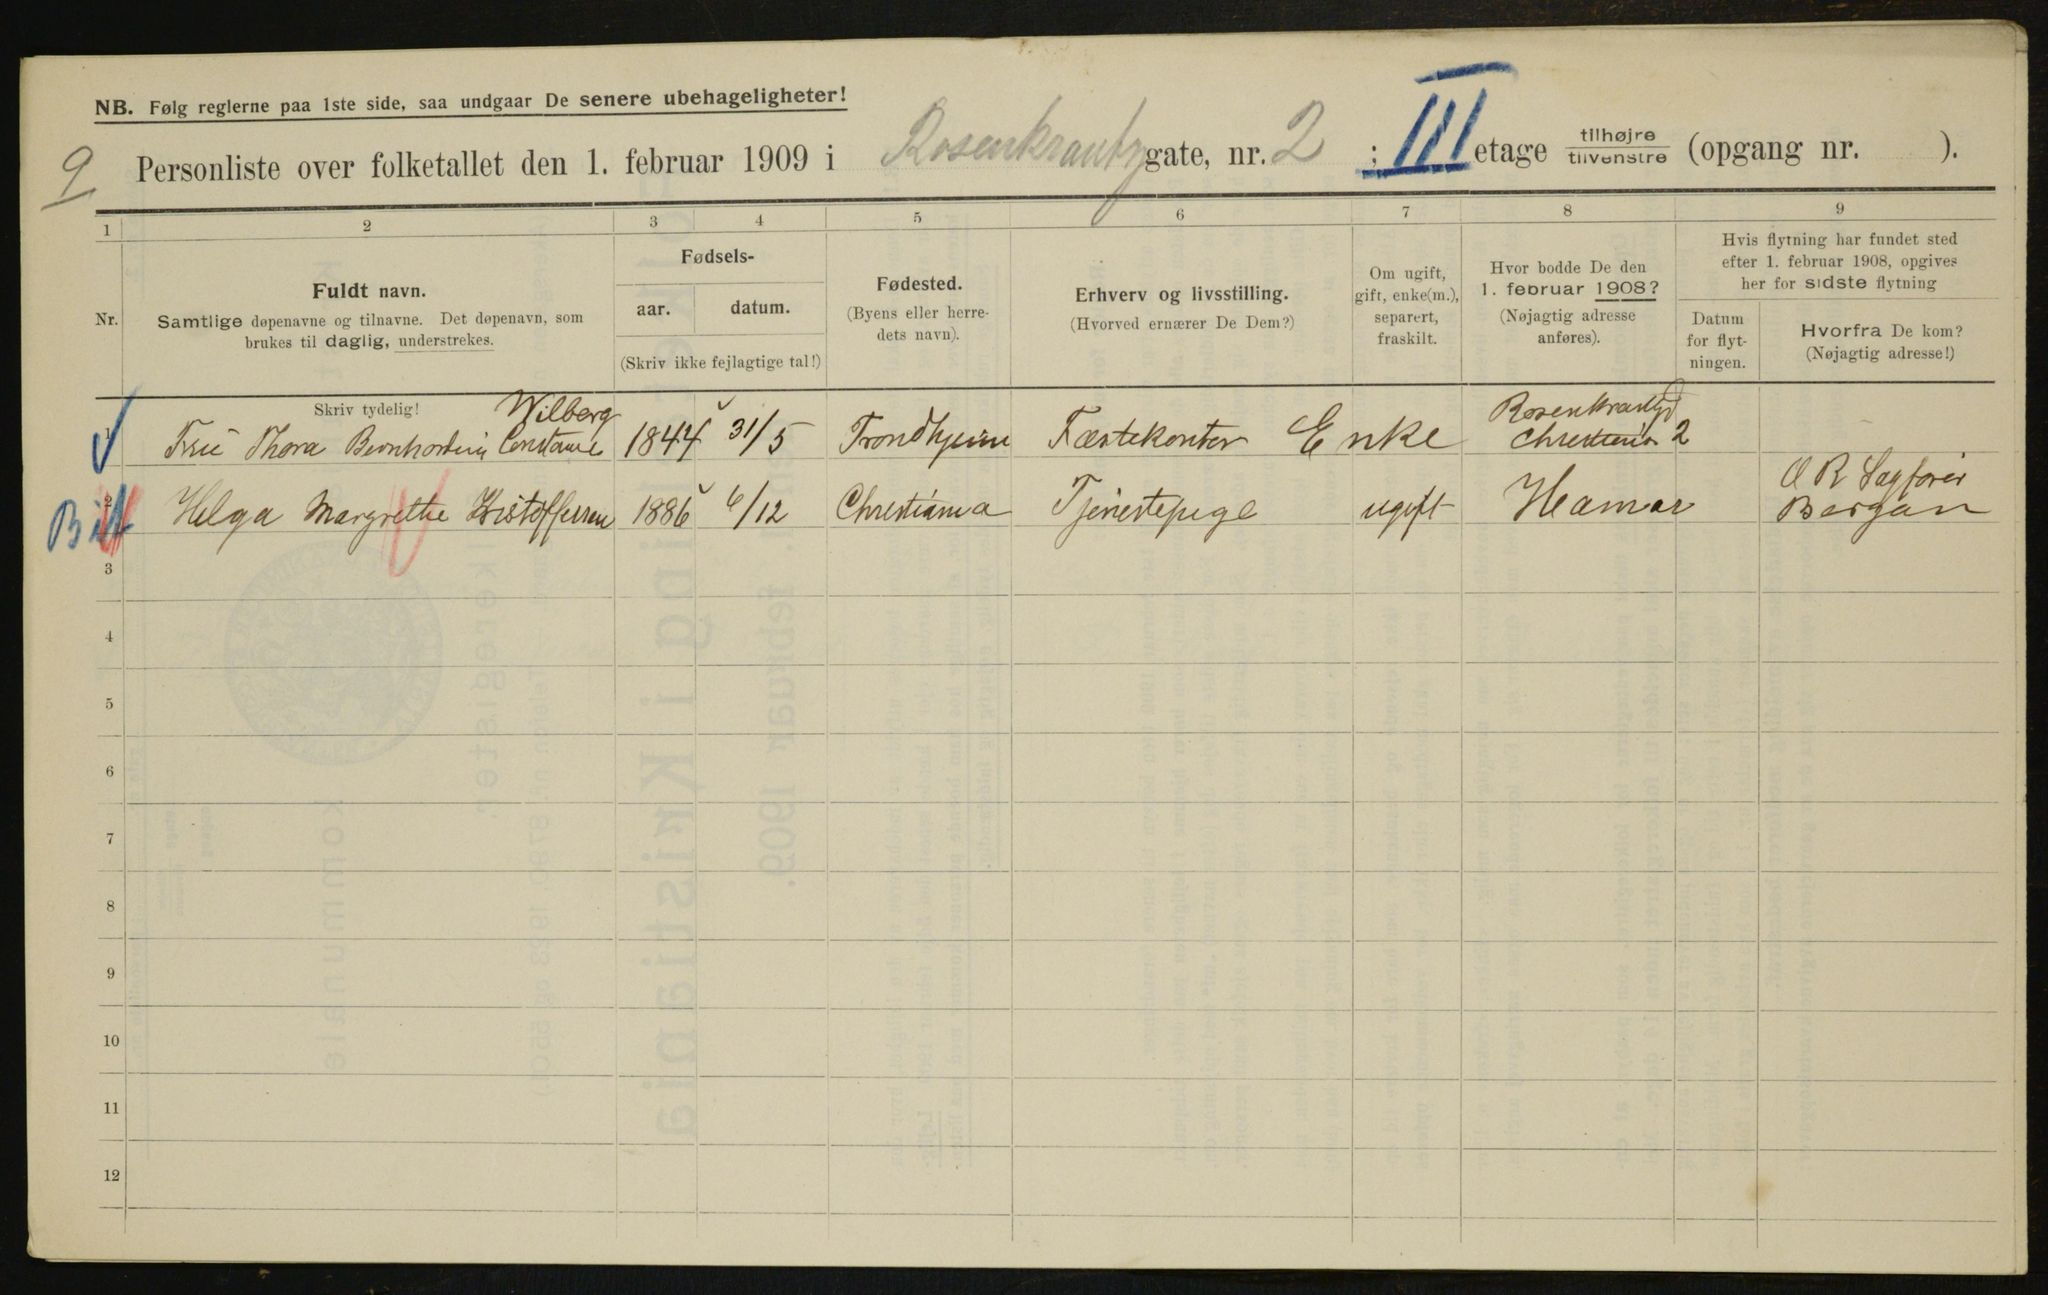 NB. Følg reglerne paa 1ste side, saa undgaar De senere ubehageligheter!
9 Personliste over folketallet den 1. februar 1909 i Rosenkrantzgate, nr. 2 ; III etage tilhøjre/tilvenstre (opgang nr. ).
1 2 3 4 5 6 7 8 9
Nr.
Fuldt navn.
Samtlige døpenavne og tilnavne. Det døpenavn, som
brukes til daglig, understrekes.
Fødsels-
aar. datum.
(Skriv ikke fejlagtige tal!)
Fødested.
(Byens eller herre-
dets navn).
Erhverv og livsstilling.
(Hvorved ernærer De Dem?)
Om ugift,
gift, enke(m.),
separert,
fraskilt.
Hvor bodde De den
1. februar 1908?
(Nøjagtig adresse
anføres).
Hvis flytning har fundet sted
efter 1. februar 1908, opgives
her for sidste flytning
Datum
for flyt-
ningen.
Hvorfra De kom?
(Nøjagtig adresse!)
Skriv tydelig! Wilberg Rosenkrantzg
1 Fru Thora Bernhardin Constance 1844 31/5 Trondhjem Fæstekontor Enke Christiania 2
O R Sagfører
2 Helga Margrethe Kristoffersen 1886 6/12 Christiania Tjenestepige ugift Hamar Bergan
3
4
5
6
7
8
9
10
11
12